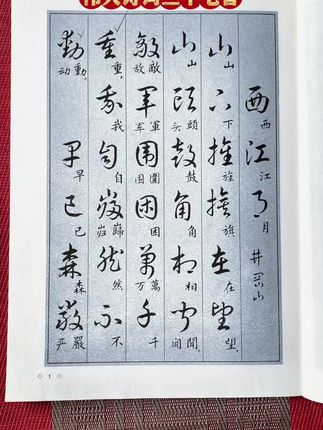 西江月 井冈山
西江月
山下旌旗在望
山下旌旗在望
山頭鼓角相聞
山頭鼓角相聞
头闻
敵軍圍困萬千
敵軍圍困萬千
敌军围万
重我自巋然不
重我自巋然不
岿
動早已森嚴
動早已森嚴
动严
1